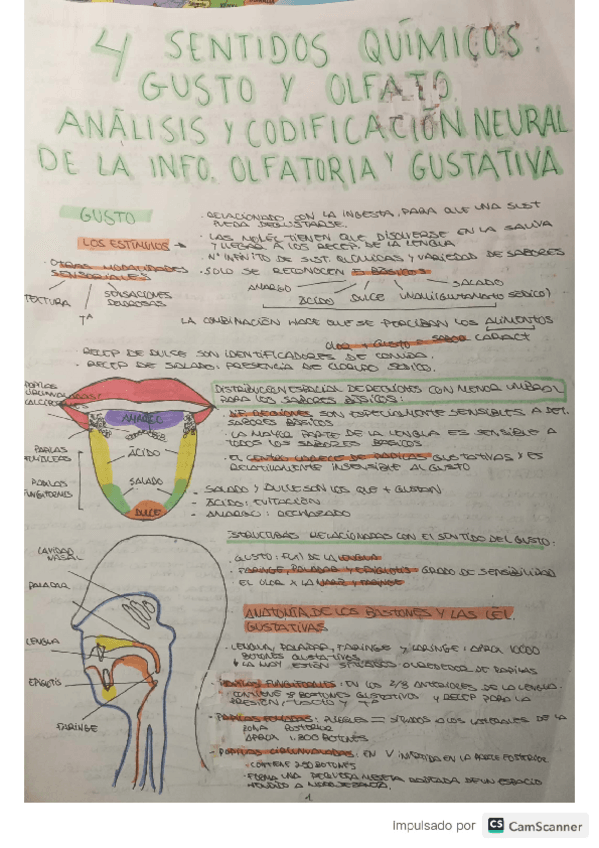 4 SENTIDOS QUÍMICOS:
GUSTO Y OLFATO.
ANÁLISIS Y CODIFICACIÓN NEURAL
DE LA INFO. OLFATORIA Y GUSTATIVA
GUSTO
· RELACIONADO CON LA INGESTA, PARA QUE UNA SUST
PUEDA DEGUSTARSE.
LOS ESTÍMULOS →
· LAS MOLÉC TIENEN QUE DISOLVERSE EN LA SALIVA
Y LLEGAR A LOS RECEP. DE LA LENGUA
· OTRAS MODALIDADES
SENSORIALES
· Nº INFINITO DE SUST. QUÍMICAS Y VARIEDAD DE SABORES
· SOLO SE RECONOCEN 5 BÁSICOS
TEXTURA
Tª
SENSACIONES
DOLOROSAS
AMARGO
ÁCIDO
DULCE
SALADO
UNAMI (GLUTAMATO SÓDICO)
LA COMBINACIÓN HACE QUE SE PERCIBAN LOS ALIMENTOS
OLOR + GUSTO = SABOR CARACT
· RECEP DE DULCE SON IDENTIFICADORES DE COMIDA.
· RECEP DE SALADO: PRESENCIA DE CLORURO SÓDICO.
DISTRIBUCIÓN ESPACIAL DE REGIONES CON MENOR UMBRAL
PARA LOS SABORES BÁSICOS:
PAPILAS
CIRCUNVALADAS/
CALICIFORMES
AMARGO
ÁCIDO
PAPILAS
FOLIADAS
SALADO
PAPILAS
FUNGIFORMES
DULCE
REGIONES SON ESPECIALMENTE SENSIBLES A DET.
SABORES BÁSICOS
· LA MAYOR PARTE DE LA LENGUA ES SENSIBLE A
TODOS LOS SABORES BÁSICOS
· EL CENTRO CARECE DE PAPILAS GUSTATIVAS Y ES
RELATIVAMENTE INSENSIBLE AL GUSTO
- SALADO Y DULCE SON LOS QUE + GUSTAN
- ÁCIDO: EVITACIÓN
- AMARGO: RECHAZADO
ESTRUCTURAS RELACIONADAS CON EL SENTIDO DEL GUSTO:
· GUSTO: FUNC DE LA LENGUA
· FARINGE, PALADAR Y EPIGLOTIS: GRADO DE SENSIBILIDAD
EL OLOR X LA NARIZ Y FARINGE
CAVIDAD
NASAL
PALADAR
LENGUA
FARINGE
ANATOMÍA DE LOS BOTONES Y LAS CÉL.
GUSTATIVAS
· LENGUA, PALADAR, FARINGE Y LARINGE: APROX 10000
BOTONES GUSTATIVOS
LA MAY ESTÁN SITUADOS ALREDEDOR DE PAPILAS
· PAPILAS FUNGIFORMES: EN LOS 2/3 ANTERIORES DE LA LENGUA.
CONTIENE 8 BOTONES GUSTATIVOS Y RECEP PARA LA
PRESIÓN, TACTO Y Tª
· PAPILAS FOLIADAS: PLIEGUES = SITUADOS A LOS LATERALES DE LA
ZONA POSTERIOR
APROX 1.300 BOTONES
· PAPILAS CIRCUNVALADAS: EN V INVERTIDA EN LA PARTE POSTERIOR
· CONTIENE 250 BOTONES
· FORMA UNA PEQUEÑA MESETA RODEADA DE UN ESPACIO
1
Impulsado por CS CamScanner